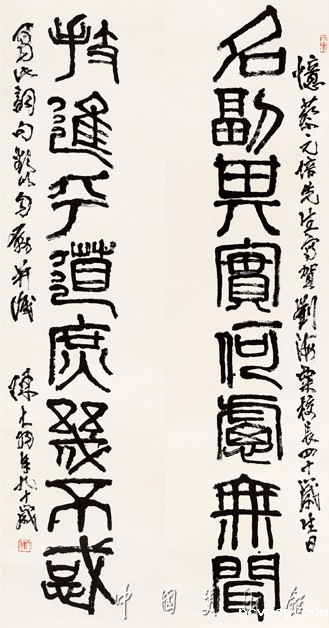 憶蔡元培先生寫賀劉海粟校長四十歲生日
名副其實何慮無聞
技進乎道庶幾不惑
句 以自勵并識 陳大羽年九十歲
中國美術館